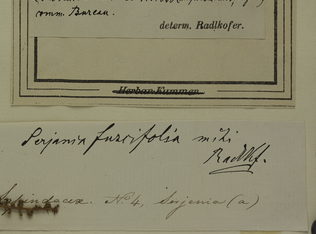 comm. Bureau.
determ. Radlkofer.
Herbar. Kummer
Serjania fuscifolia mihi
Radlkf.
Sapindaceæ. No 4, Serjania (a)